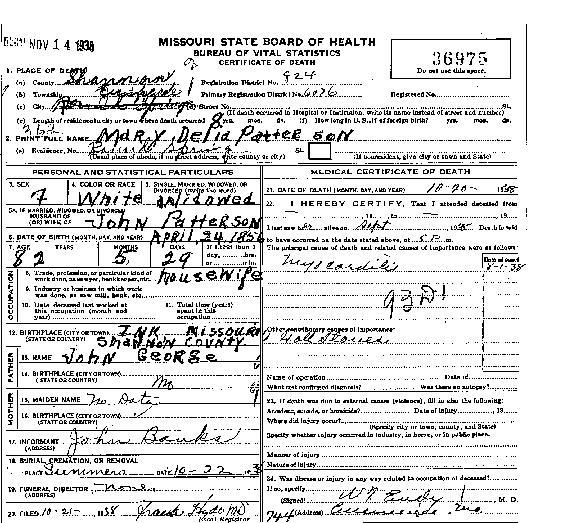 NOV 14 1938
MISSOURI STATE BOARD OF HEALTH
BUREAU OF VITAL STATISTICS
CERTIFICATE OF DEATH
36975
Do not use this space.
1. PLACE OF DEATH
(a) County Shannon Registration District No. 924
(b) Township Primary Registration District No. 6076 Registered No.
(c) City (d) Street No. St.
(If death occurred in Hospital or Institution, write its name instead of street and number)
(e) Length of residence in city or town where death occurred 8 yrs. mos. ds. (f) How long in U. S., if of foreign birth? yrs. mos. ds.
2. PRINT FULL NAME Mary Delia Patterson
(a) Residence, No. St.
(Usual place of abode, if no street address, write county or city) (If nonresident, give city or town and State)
PERSONAL AND STATISTICAL PARTICULARS
3. SEX 4. COLOR OR RACE 5. SINGLE, MARRIED, WIDOWED, OR DIVORCED
7 White Widowed
5A. IF MARRIED, WIDOWED, OR DIVORCED
HUSBAND OF
(OR) WIFE OF John Patterson
6. DATE OF BIRTH (MONTH, DAY, AND YEAR) April 24, 1856
7. AGE YEARS MONTHS DAYS
82 5 29
OCCUPATION
8. Trade, profession, or particular kind of work done, sawyer, bookkeeper, etc. housewife
9. Industry or business in which work was done, as saw mill, bank, etc.
10. Date deceased last worked at this occupation (month and year) 11. Total time (years) spent in this occupation
12. BIRTHPLACE (CITY OR TOWN) Ink Missouri
(STATE OR COUNTRY) Shannon County
FATHER
13. NAME John George
14. BIRTHPLACE (CITY OR TOWN)
(STATE OR COUNTRY) Mo
MOTHER
15. MAIDEN NAME No Data
16. BIRTHPLACE (CITY OR TOWN)
(STATE OR COUNTRY)
17. INFORMANT John Banks
(ADDRESS)
18. BURIAL, CREMATION, OR REMOVAL
PLACE Summers DATE 10-22
19. FUNERAL DIRECTOR none
(ADDRESS)
20. FILED 10-21- 1938 Frank Hyde MD
Local Registrar
MEDICAL CERTIFICATE OF DEATH
21. DATE OF DEATH (MONTH, DAY, AND YEAR) 10-20- 1938
22. I HEREBY CERTIFY, That I attended deceased from
, 19 , to , 19
I last saw alive on Sept 1938 Death is said
to have occurred on the date stated above, at 5 P m.
The principal cause of death and related causes of importance were as follows:
Date of onset
Myocarditis 8-1-38
93D!
Other contributory causes of importance:
Gall Stones
Name of operation Date of
What test confirmed diagnosis? Was there an autopsy?
23. If death was due to external causes (violence), fill in also the following:
Accident, suicide, or homicide? Date of injury , 19
Where did injury occur?
(Specify city or town, county, and State)
Specify whether injury occurred in industry, in home, or in public place.
Manner of injury
Nature of injury
24. Was disease or injury in any way related to occupation of deceased?
If so, specify
(Signed) , M. D.
744 (Address) Mo